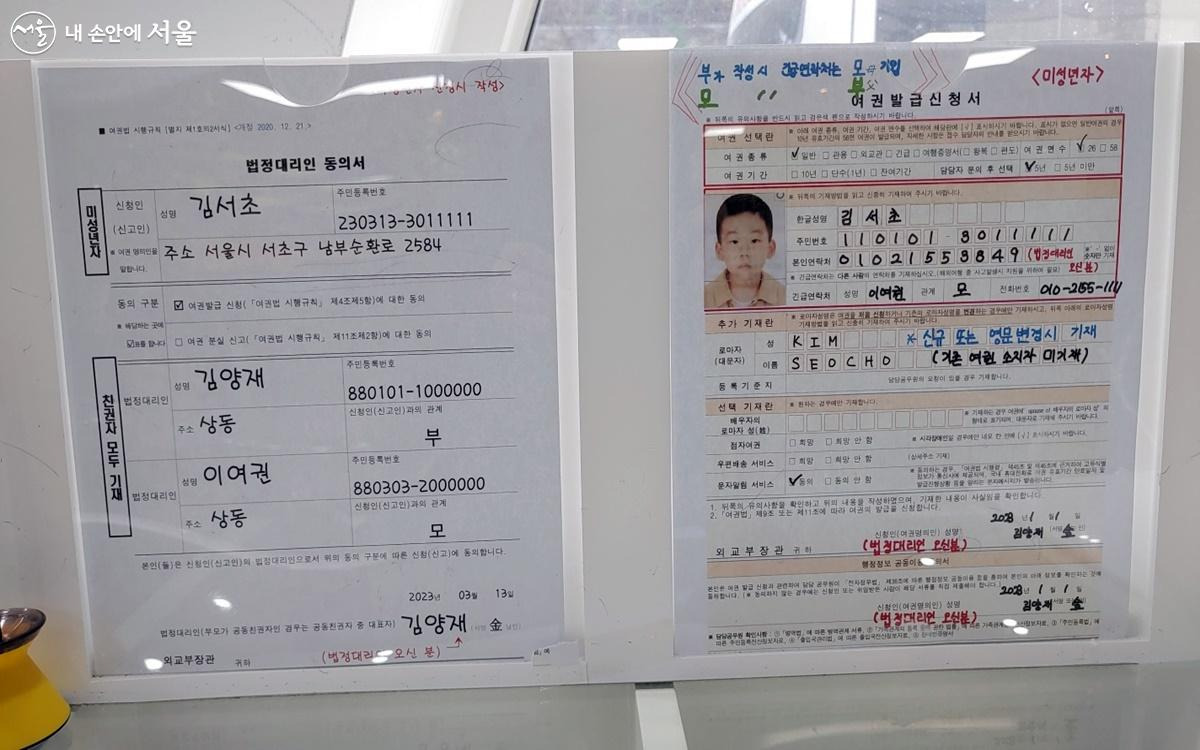 서울 내 손안에 서울
작성>
■ 여권법 시행규칙 [별지 제1호의2서식] <개정 2020. 12. 21.>
법정대리인 동의서
미성년자
신청인
(신고인)
※ 여권 명의인을
말합니다.
성명 김서초
주민등록번호
230313-3011111
주소 서울시 서초구 남부순환로 2584
동의 구분
※ 해당하는 곳에
☑표를 합니다
☑ 여권발급 신청(「여권법 시행규칙」 제4조제5항)에 대한 동의
□ 여권 분실 신고(「여권법 시행규칙」 제11조제2항)에 대한 동의
친권자 모두 기재
법정대리인
성명 김양재
주민등록번호
880101-1000000
주소 상동
신청인(신고인)과의 관계
부
법정대리인
성명 이여권
주민등록번호
880303-2000000
주소 상동
신청인(신고인)과의 관계
모
본인(들)은 신청인(신고인)의 법정대리인으로서 위의 동의 구분에 따른 신청(신고)에 동의합니다.
2023년 03월 13일
법정대리인(부모가 공동친권자인 경우는 공동친권자 중 대표자) 김양재 金
외교부장관 귀하
(법정대리인 오신 분)
부가 작성시 긴급연락처는 모 기입
모 〃 부
<미성년자>
여권발급신청서
(앞쪽)
※ 뒤쪽의 유의사항을 반드시 읽고 검은색 펜으로 작성하시기 바랍니다.
여권 선택란
여권종류 ☑ 일반 □ 관용 □ 외교관 □ 긴급 □ 여행증명서(□ 왕복 □ 편도) 여권 면수 ☑ 26 □ 58
여권기간 □ 10년 □ 단수(1년) □ 잔여기간 담당자 문의 후 선택 ☑ 5년 □ 5년 미만
※ 뒤쪽의 기재방법을 읽고 신중히 기재하여 주시기 바랍니다.
한글성명 김서초
주민번호 110101-3011111
본인연락처 01021553849 (법정대리인 오신분)
※ '-' 없이 숫자만 기재
※ 긴급연락처는 다른 사람의 연락처를 기재하십시오. (해외여행 중 사고발생시 지원을 위하여 필요)
긴급연락처 성명 이여권 관계 모 전화번호 010-2155-1111
추가 기재란
로마자
(대문자)
성 KIM
이름 SEOCHO
* 신규 또는 영문변경시 기재
(기존 여권 소지자 미기재)
등록기준지 담당공무원의 요청이 있을 경우 기재합니다.
선택 기재란 ※ 원하는 경우에만 기재합니다.
배우자의
로마자 성(姓)
점자여권 □ 희망 □ 희망 안 함 ※ 시각장애인일 경우에만 네모 칸 안에 [√] 표시하시기 바랍니다.
우편배송 서비스 □ 희망 □ 희망 안 함 (상세주소 기재)
문자알림 서비스 ☑ 동의 □ 동의 안 함
1. 뒤쪽의 유의사항을 확인하고 위의 내용을 작성하였으며, 기재한 내용이 사실임을 확인합니다.
2. 「여권법」 제9조 또는 제11조에 따라 여권의 발급을 신청합니다.
2023년 1월 1일
신청인(여권명의인) 성명 김양재 金
외교부장관 귀하
(법정대리인 오신분)
행정정보 공동이용 동의서
2023년 1월 1일
신청인(여권명의인) 성명 김양재 金
(법정대리인 오신분)